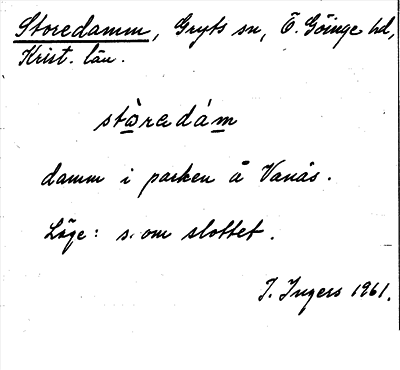 Storedamm, Gryts sn, Ö. Göinge hd,
Krist. län.
stòredám
damm i parken å Vanås.
Läge: s. om slottet.
I. Ingers 1961.